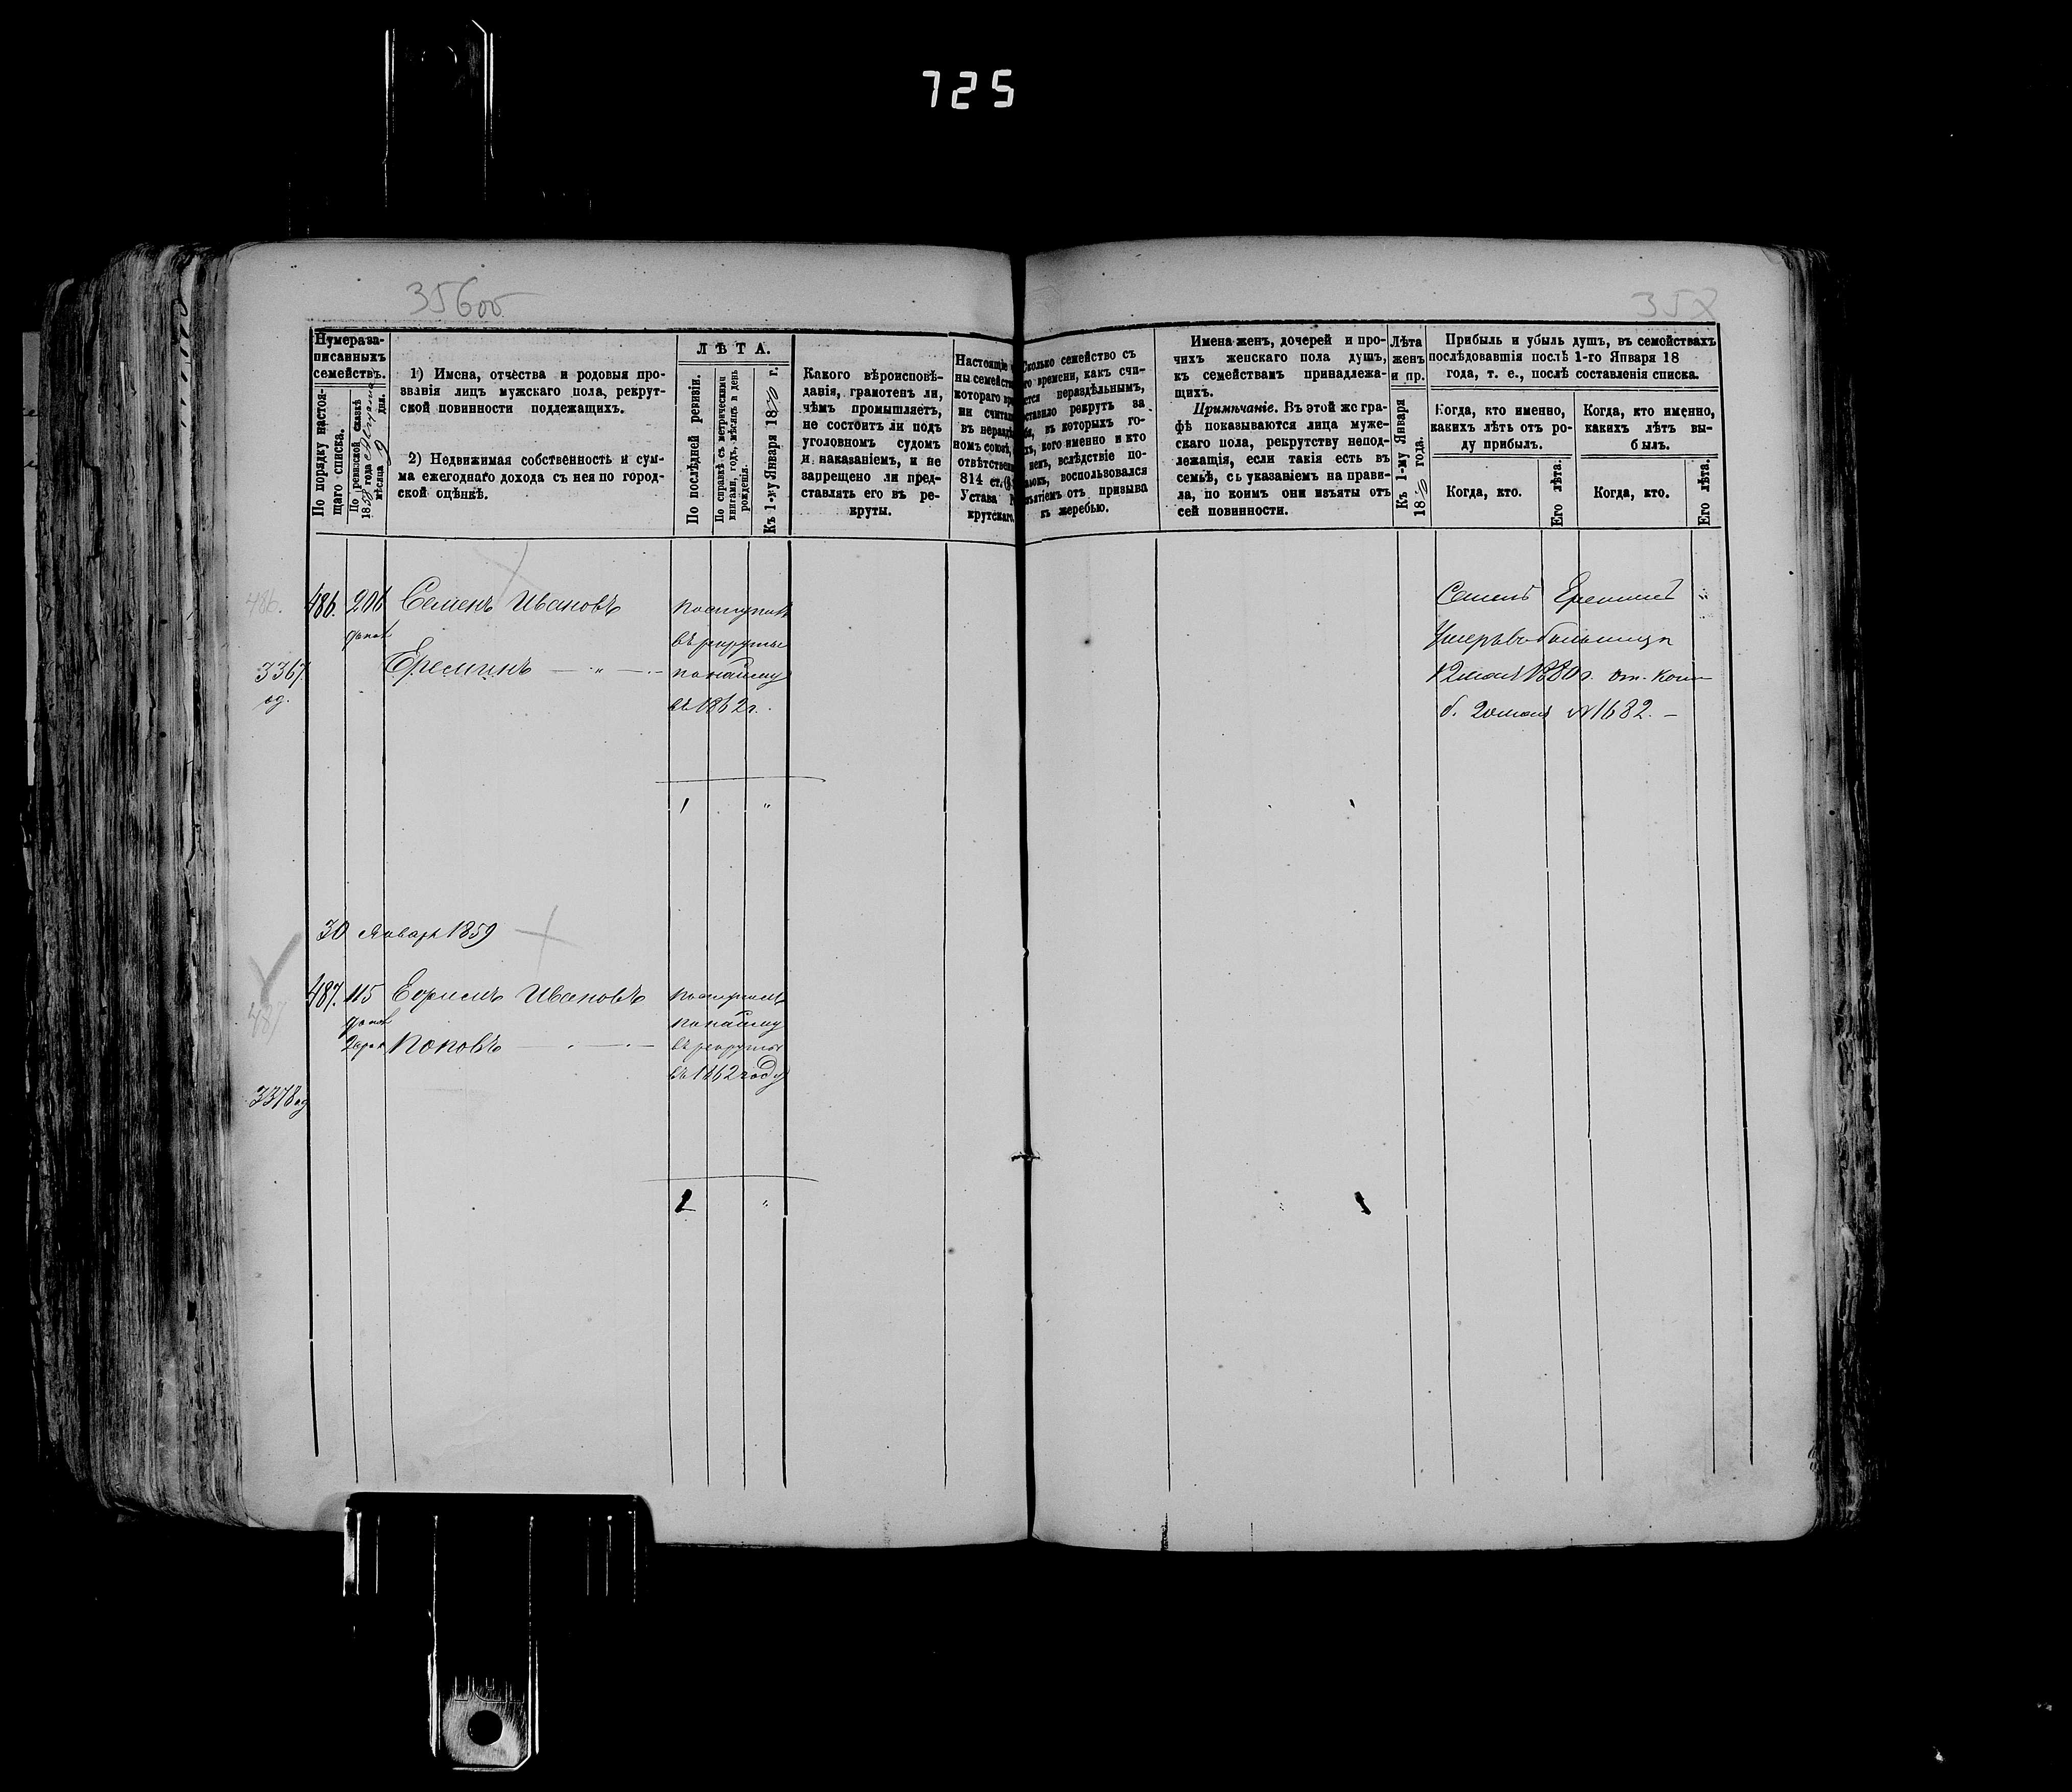 725
356об
357
Нумера записанныхъ семействъ.
По порядку настоящаго списка.
По ревизской сказкѣ 1858 года мѣсяца дня.
1) Имена, отчества и родовыя прозванія лицъ мужскаго пола, рекрутской повинности подлежащихъ.
2) Недвижимая собственность и сумма ежегоднаго дохода съ нея по городской оцѣнкѣ.
ЛѢТА.
По послѣдней ревизіи.
По справкѣ съ метрическими книгами, годъ, мѣсяцъ и день рожденія.
Къ 1-му Января 18 г.
Какого вѣроисповѣданія, грамотенъ ли, чѣмъ промышляетъ, не состоитъ ли подъ уголовномъ судомъ и наказаніемъ, и не запрещено ли представлять его въ рекруты.
Настоящіе
ны семейств
котораго вре
ни считае
въ неразд
номъ союзѣ,
отвѣтствен
814 ст.
Устава
крутскаго.
Сколько семейство съ
го времени, какъ счи-
ется нераздѣльнымъ,
ставило рекрутъ за
бя, въ которыхъ го-
хъ, кого именно и кто
немъ, вслѣдствіе по-
воспользовался
ъятіемъ отъ призыва
къ жеребью.
Имена женъ, дочерей и прочихъ женскаго пола душъ, къ семействамъ принадлежащихъ.
Примѣчаніе. Въ этой же графѣ показываются лица мужескаго пола, рекрутству неподлежащія, если такія есть въ семьѣ, съ указаніемъ на правила, по коимъ они изъяты отъ сей повинности.
Лѣта женъ и пр.
Къ 1-му Января 18 года.
Прибыль и убыль душъ, въ семействахъ послѣдовавшія послѣ 1-го Января 18 года, т. е., послѣ составленія списка.
Когда, кто именно, какихъ лѣтъ отъ роду прибылъ.
Когда, кто именно, какихъ лѣтъ выбылъ.
Когда, кто.
Его лѣта.
Когда, кто.
Его лѣта.
486.
486. 206 Семенъ Ивановъ
Поступилъ
въ рекруты
3367.
Ереминъ
по найму
въ 1862 г.
Семенъ Ереминъ
Умеръ въ больницѣ
12 мая 1880 г.
20 мая №1682. –
1 "
30 Январь 1859
487. 115 Ефимъ Ивановъ
487
Поповъ
Поступилъ
по найму
въ рекруты
въ 1862 году
3378
1 "
1